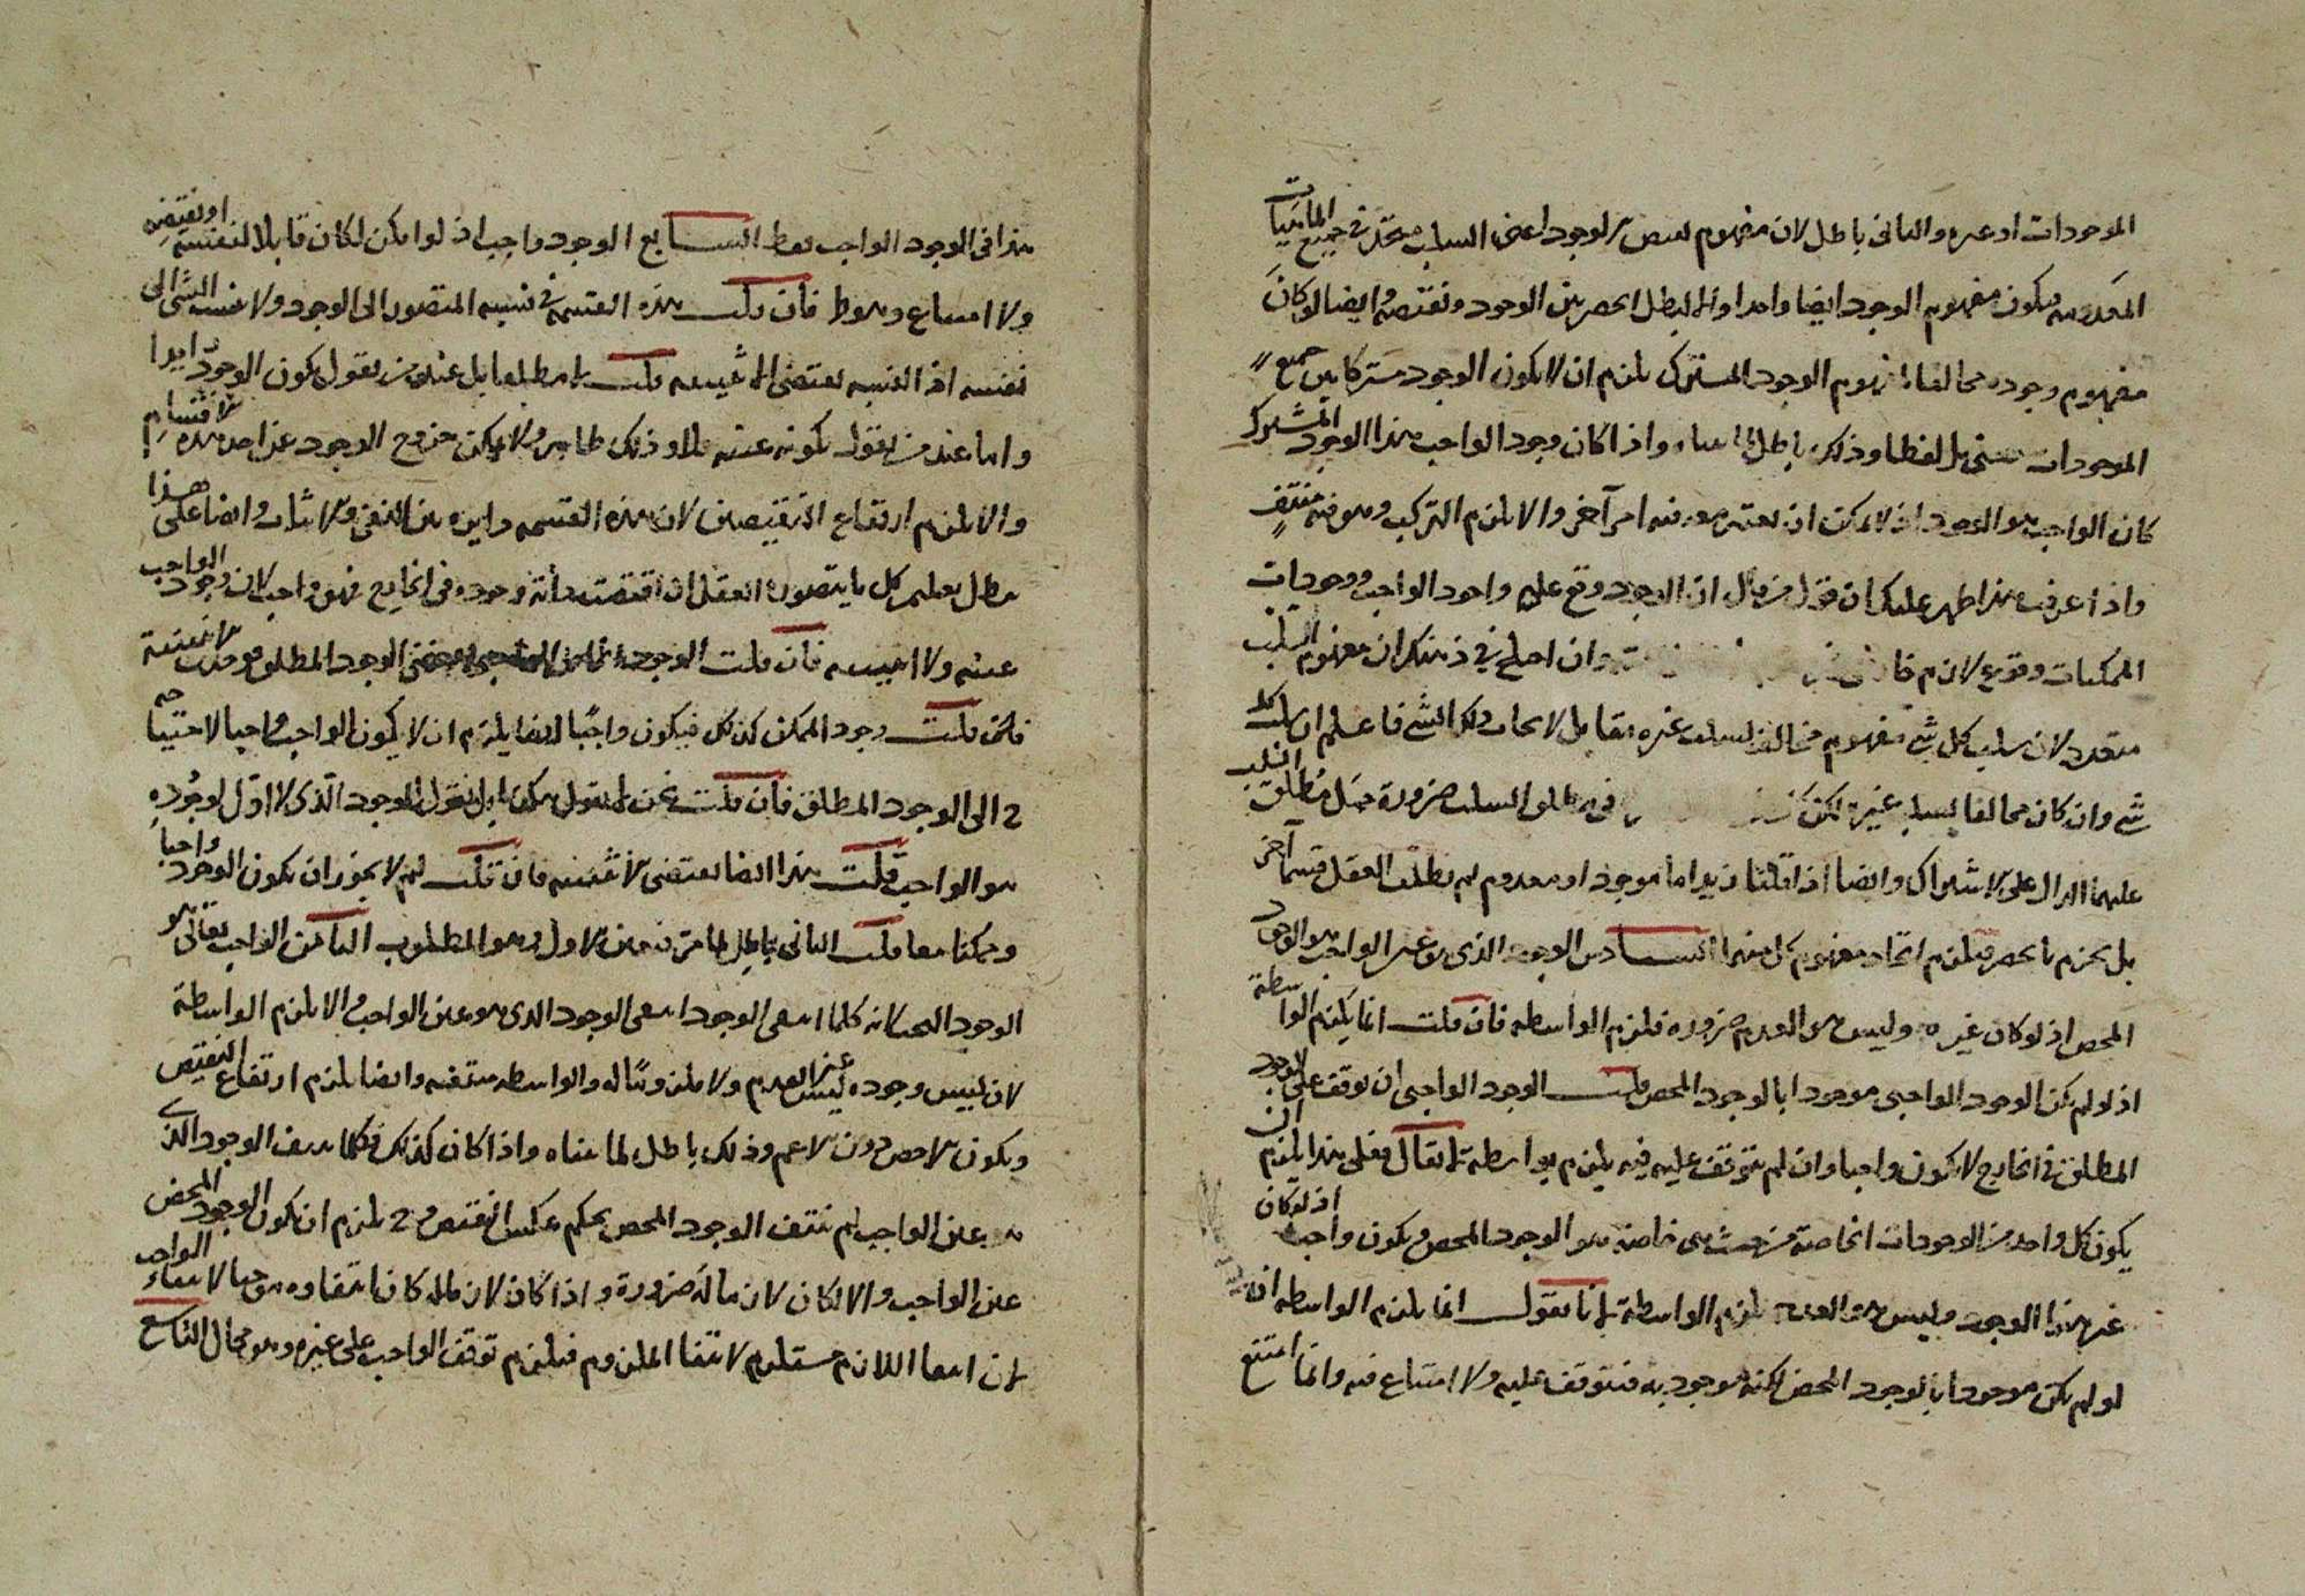 الموجودات او غيره والثانى باطل لان مفهوم نقيض الوجود اعنى السلب متحد فى جميع الماهيات
فيكون مفهوم الوجود ايضا واحدا والا لبطل الحصر بين الوجود ونقيضه وايضا لو كان
مفهوم وجوده مخالفا لمفهوم الوجود المشترك يلزم ان لا يكون الوجود مشتركا بين جميع
الموجودات معنى بل لفظا وذلك باطل لما واذا كان وجود الواجب هذا الوجود المشترك
كان الواجب هو الوجود اذ لا يمكن ان يعتبر معه فيه امر آخر والا لزم التركيب وهو فيه منتف
واذا عرفت هذا ظهر عليك ان قول من قال ان الوجود وقع على وجود الواجب ووجودات
الممكنات وقوع لازم وان اختلج فى ذهنك ان مفهوم السلب
متعدد لان سلب كل شئ مفهوم مخالف لسلب غيره مقابل لايجاب ذلك الشئ فاعلم ان سلب كل
شئ وان كان مخالفا لسلب غيره لكن فى مطلق السلب ضرورة حمل مطلق السلب
عليهما الدال على الاشتراك وايضا اذا قلنا زيد اما موجود او معدوم لم يطلب العقل قسما آخر
بل يجزم بالحصر فيلزم اتحاد مفهوم كل منهما السادس الوجود الذى هو عين الواجب هو الوجود
المحض اذ لو كان غيره وليس هو العدم ضرورة فلزم الواسطه فان قلت انما يلزم الواسطة
اذ لو لم يكن الوجود الواجبى موجودا بالوجود المحض قلت الوجود الواجبى ان توقف على الوجود
المطلق فى الخارج لا يكون واجبا وان لم يتوقف عليه فيه يلزم بواسطة لا يقال فعلى هذا يلزم ان
يكون كل واحد من الوجودات الخاصة من حيث هى خاصة هو الوجود المحض ويكون واجبا اذ لو كان
غير هذا الوجود وليس هو العدم يلزم الواسطة لانا نقول انما يلزم الواسطه ان
لو لم يكن موجودا بالوجود المحض لكنه موجود به فيتوقف عليه ولا امتناع فيه وانما امتنع
هذا فى الوجود الواجب فقط السابع الوجود واجب اذ لو امكن لكان قابلا لنفسه او نقيضه
ولا امتناع فان قلت هذه القسمة فى نسبة المتصور الى الوجود ولا ينسب الشئ الى
نفسه اذ النسبه يقتضى الاثنينيه قلت لا مطلقا بل عند من يقول بكون الوجود زايدا
واما عند من يقول بكونه عينه فلا وذلك ظاهر ولا يمكن خروج الوجود عن احد هذه الاقسام
والا لزم ارتفاع النقيضين لان هذه القسمه دايره بين النفى والاثبات وايضا على هذا
بطل قولهم كل ما يتصوره العقل ان اقتضت ذاته وجوده فى الخارج فهو واجب لان وجود الواجب
عينه ولا اثنينيه فان قلت الوجود الواجبى يقتضى الوجود المطلق
فان قلت وجود الممكن كذلك فيكون واجبا ايضا يلزم ان لا يكون الواجب واجبا لاحتياجه
ح الى الوجود المطلق فان قلت نحن لا نقول هكذا بل نقول الوجود الذى لا اول لوجوده
هو الواجب قلت هذا ايضا يقتضى الاثنينيه فان قلت لم لا يجوز ان يكون الوجود واجبا
وممكنا معا قلت الثانى باطل لما مر فتعين الاول وهو المطلوب الثامن الواجب تعالى هو
الوجود البحت لانه كلما انتفى الوجود انتفى الوجود الذى هو عين الواجب والا لزم الواسطة
لان ليس وجوده عين العدم ولا ملزوما له والواسطه منتفيه وايضا يلزم ارتفاع النقيض
ويكون الاخص دون الاعم وذلك باطل لما بيناه واذا كان كذلك فكلما لم ينتف الوجود الذى
هو عين الواجب لم ينتف الوجود المحض بحكم عكس النقيض وح يلزم ان يكون الوجود المحض
عين الواجب والا لكان لازما له ضرورة واذا كان لازما له كان انتفاوه موجبا لانتفاء الواجب
لان انتفا اللازم مستلزم لانتفا الملزوم فيلزم توقف الواجب على غيره وهو محال التاسع